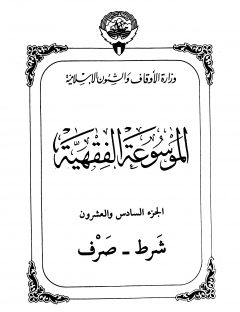 وزارة الأوقاف والشئون الإسلامية
الموسوعة الفقهية
الجزء السادس والعشرون
شرط - صرف